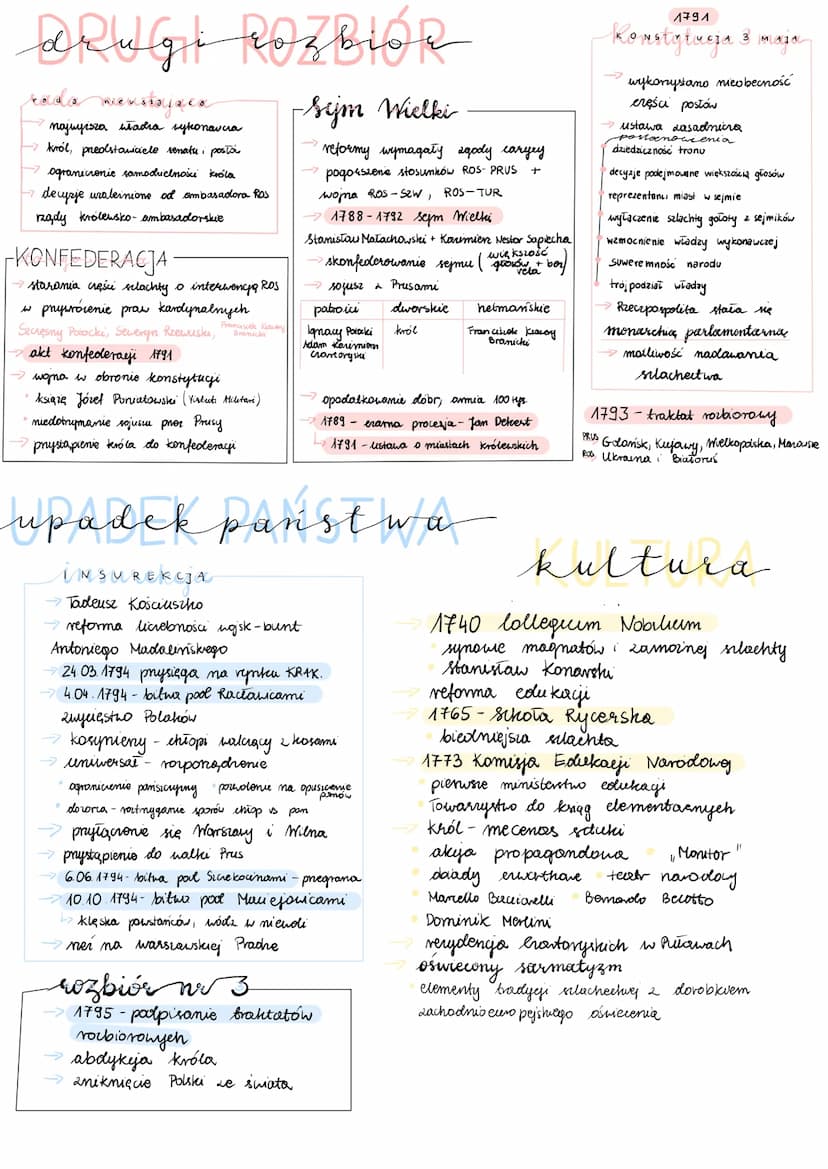 DRUGI ROZBIÓR
drugi rozbiór
rada nieustająca
→ najwyższa władza wykonawcza
→ król, przedstawiciele senatu i posłó
→ ograniczenie samodzielności króla
→ decyzje uzależnione od ambasadora ROS
rządy królewsko-ambasadorskie
KONFEDERACJA
→ starania części szlachty o interwencję ROS
w przywrócenie praw kardynalnych
Szczęsny Potocki, Seweryn Rzewuski, Franciszek Ksawery Branicki
→ akt konfederacji 1791
→ wojna w obronie konstytucji
• książę Józef Poniatowski (Virtuti Militari)
• niedotrzymanie sojuszu przez Prusy
→ przystąpienie króla do konfederacji
Sejm Wielki
→ reformy wymagały zgody carycy
→ pogorszenie stosunków ROS-PRUS +
wojna ROS-SZW, ROS-TUR
→ 1788-1792 Sejm Wielki
Stanisław Małachowski + Kazimierz Nestor Sapiecha
→ skonfederowanie sejmu (większość głosów + bez veta)
→ sojusz z Prusami
patrioci dworskie hetmańskie
Ignacy Potocki król Franciszek Ksawery
Adam Kazimierz Branicki
Czartoryski
→ opodatkowanie dóbr, armia 100 tyś
→ 1789 - czarna procesja - Jan Dekert
↳ 1791 - ustawa o miastach królewskich
1791
Konstytucja 3 maja
KONSTYTUCJA 3 MAJA
→ wykorzystano nieobecność
części posłów
→ ustawa zasadnicza
postanowienia
dziedziczność tronu
decyzje podejmowane większością głosów
reprezentanci miast w sejmie
wyłączenie szlachty gołoty z sejmików
wzmocnienie władzy wykonawczej
suwerenność narodu
trójpodział władzy
→ Rzeczpospolita stała się
monarchią parlamentarną
→ możliwość nadawania
szlachectwa
1793 - traktat rozbiorowy
PRUS Gdańsk, Kujawy, Wielkopolska, Mazowsze
ROS Ukraina i Białoruś
UPADEK PAŃSTWA
upadek państwa
insurekcja
INSUREKCJA
→ Tadeusz Kościuszko
→ reforma liczebności wojsk - bunt
Antoniego Madalińskiego
→ 24.03.1794 przysięga na rynku KRAK.
→ 4.04.1794 - bitwa pod Racławicami
zwycięstwo Polaków
→ kosynierzy - chłopi walczący z kosami
→ uniwersał - rozporządzenie
• ograniczenie pańszczyzny • pozwolenie na opuszczenie panów
• dozorca - rozstrzyganie sporów chłop vs pan
→ przyłączenie się Warszawy i Wilna
→ przystąpienie do walki Prus
→ 6.06.1794 - bitwa pod Szczekocinami - przegrana
→ 10.10.1794 - bitwa pod Maciejowicami
↳ klęska powstańców, wódz w niewoli
→ rzeź na warszawskiej Pradze
rozbiór nr 3
→ 1795 - podpisanie traktatów
rozbiorowych
→ abdykcja króla
→ zniknięcie Polski ze świata
KULTURA
kultura
→ 1740 Collegium Nobilium
• synowie magnatów i zamożnej szlachty
• Stanisław Konarski
→ reforma edukacji
→ 1765 - Szkoła Rycerska
• biedniejsza szlachta
→ 1773 Komisja Edukacji Narodowej
• pierwsze ministerstwo edukacji
• Towarzystwo do ksiąg elementarnych
→ król - mecenas sztuki
• akcja propagandowa • „Monitor"
• obiady czwartkowe • teatr narodowy
• Marcello Bacciarelli • Bernardo Belotto
• Dominik Merlini
→ rezydencja Czartoryskich w Puławach
→ oświecony sarmatyzm
• elementy tradycji szlacheckiej z dorobkiem
zachodnioeuropejskiego oświecenia